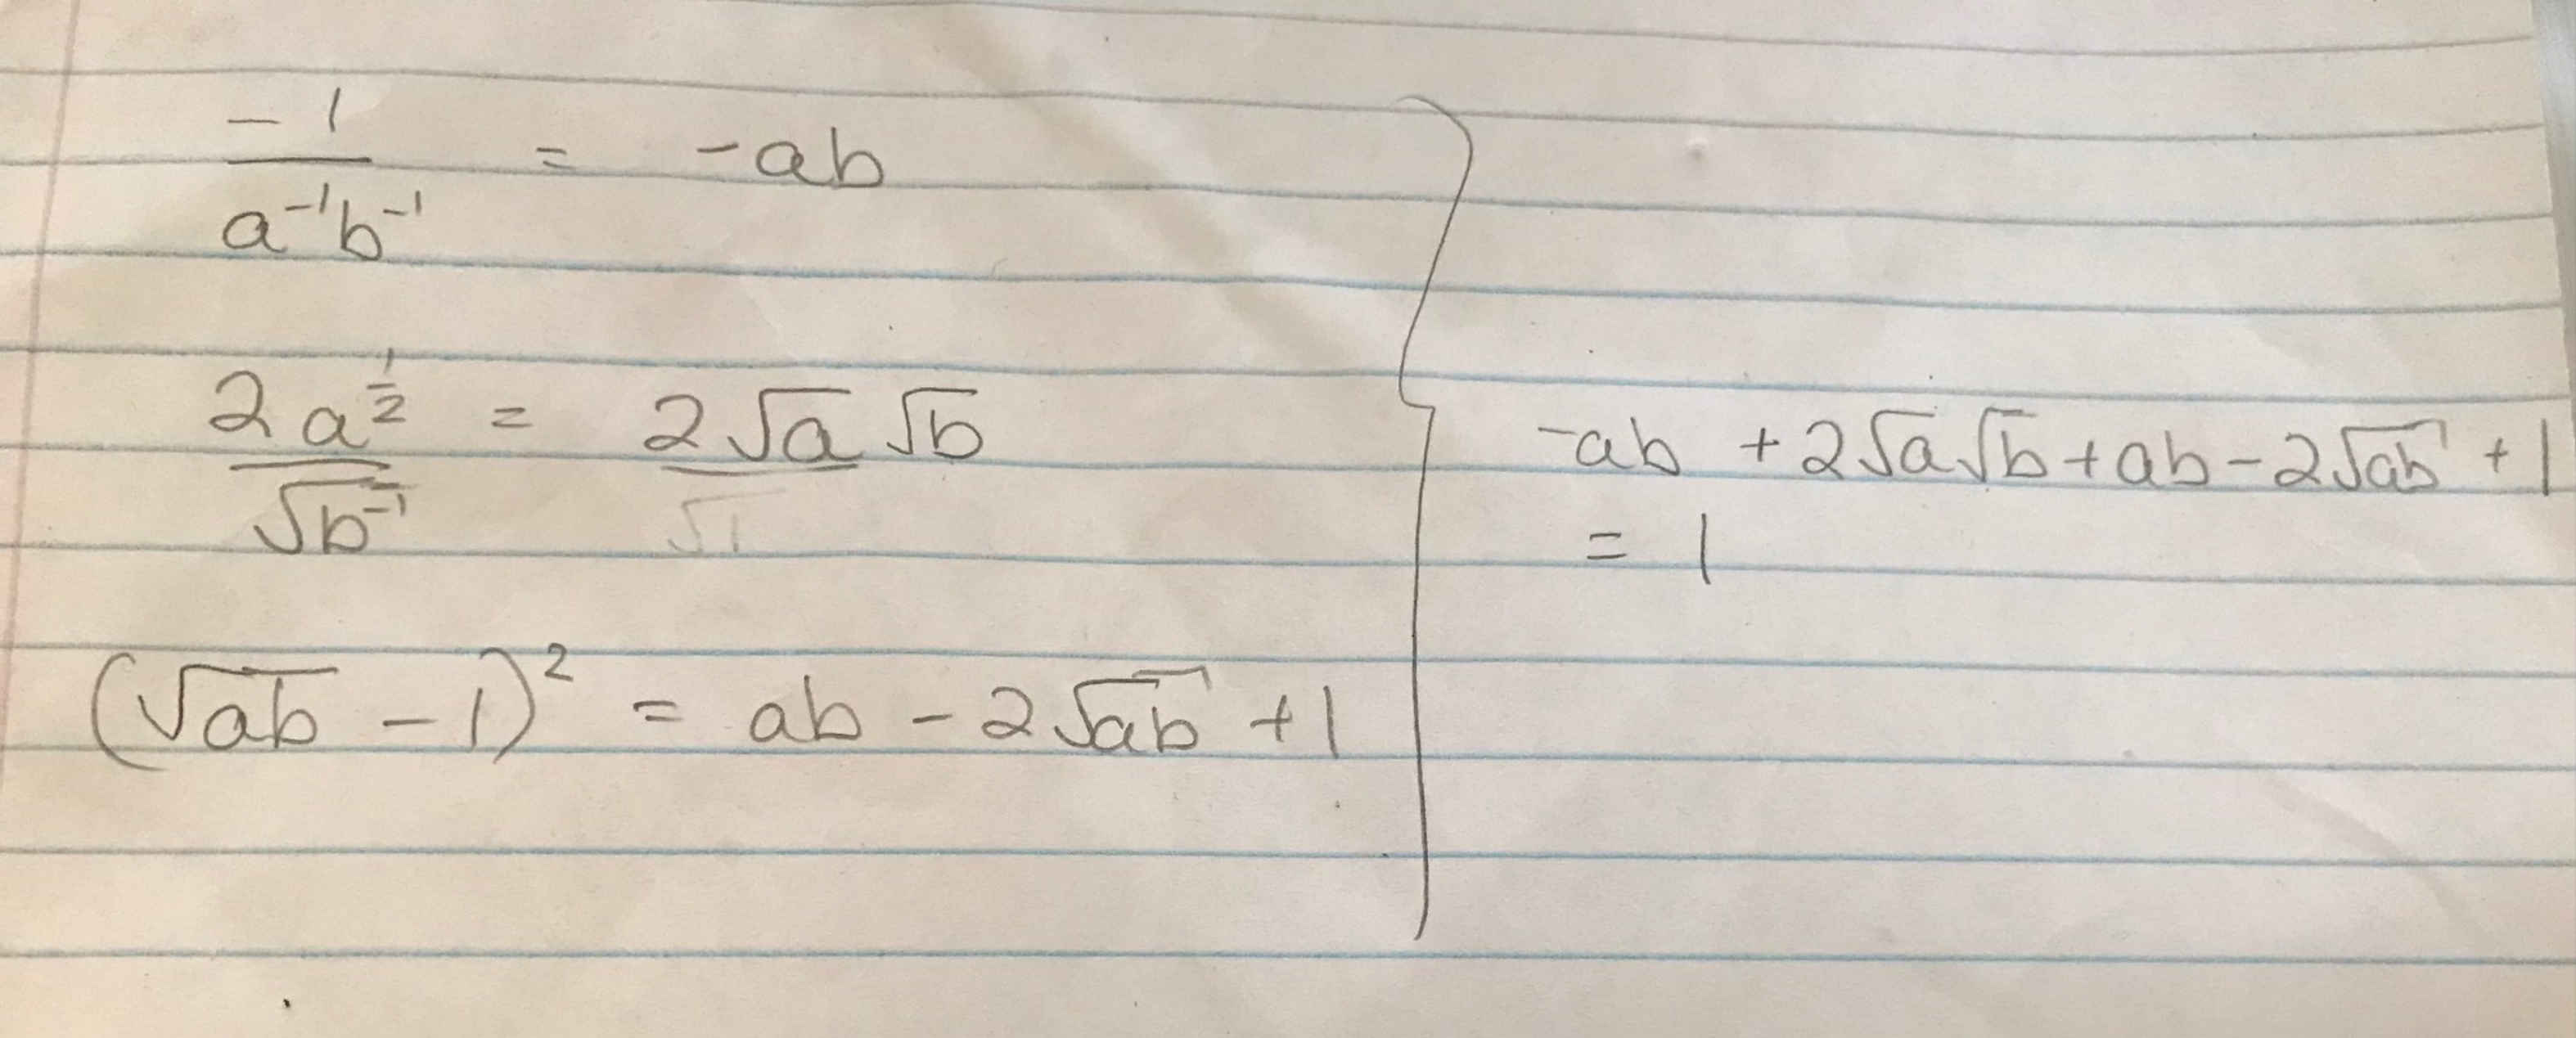 -1/(a⁻¹b⁻¹) = -ab
2a^(1/2)/√(b⁻¹) = 2√a √b
√1
(√ab - 1)² = ab - 2√ab + 1
-ab + 2√a√b + ab - 2√ab + 1
= 1